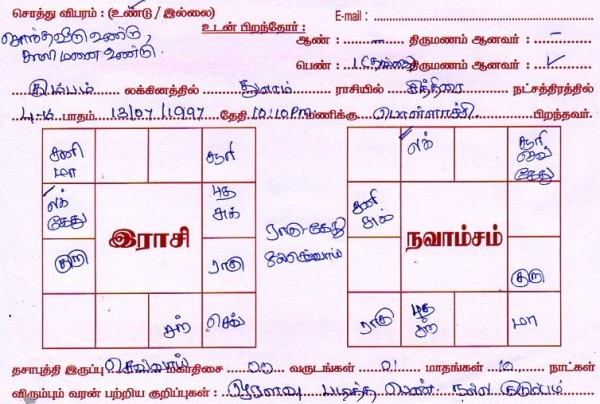 சொத்து விபரம் : (உண்டு / இல்லை)
E-mail :
சொந்த வீடு உண்டு,
காலி மனை உண்டு.
உடன் பிறந்தோர் :
ஆண் : – திருமணம் ஆனவர் : –
பெண் : திருமணம் ஆனவர் : ✓
கும்பம் லக்கினத்தில் துலாம் ராசியில் சித்திரை நட்சத்திரத்தில்
4-ம் பாதம் 13/07/1997 தேதி 10:10 PM மணிக்கு பொள்ளாச்சி பிறந்தவர்.
சனி
மா
சூரி
லக்
கேது
புத
சுக்
குரு
ராகு
சந்
செவ்
இராசி
ராகு-கேது
செவ்வாய்
லக்
சூரி
செவ்
கேது
சனி
சுக்
குரு
ராகு
புத
சந்
மா
நவாம்சம்
தசாபுத்தி இருப்பு செவ்வாய் மகாதிசை 00 வருடங்கள் 01 மாதங்கள் 10 நாட்கள்
விரும்பும் வரன் பற்றிய குறிப்புகள் : ஓரளவு படித்த பெண். நல்ல குடும்பம்